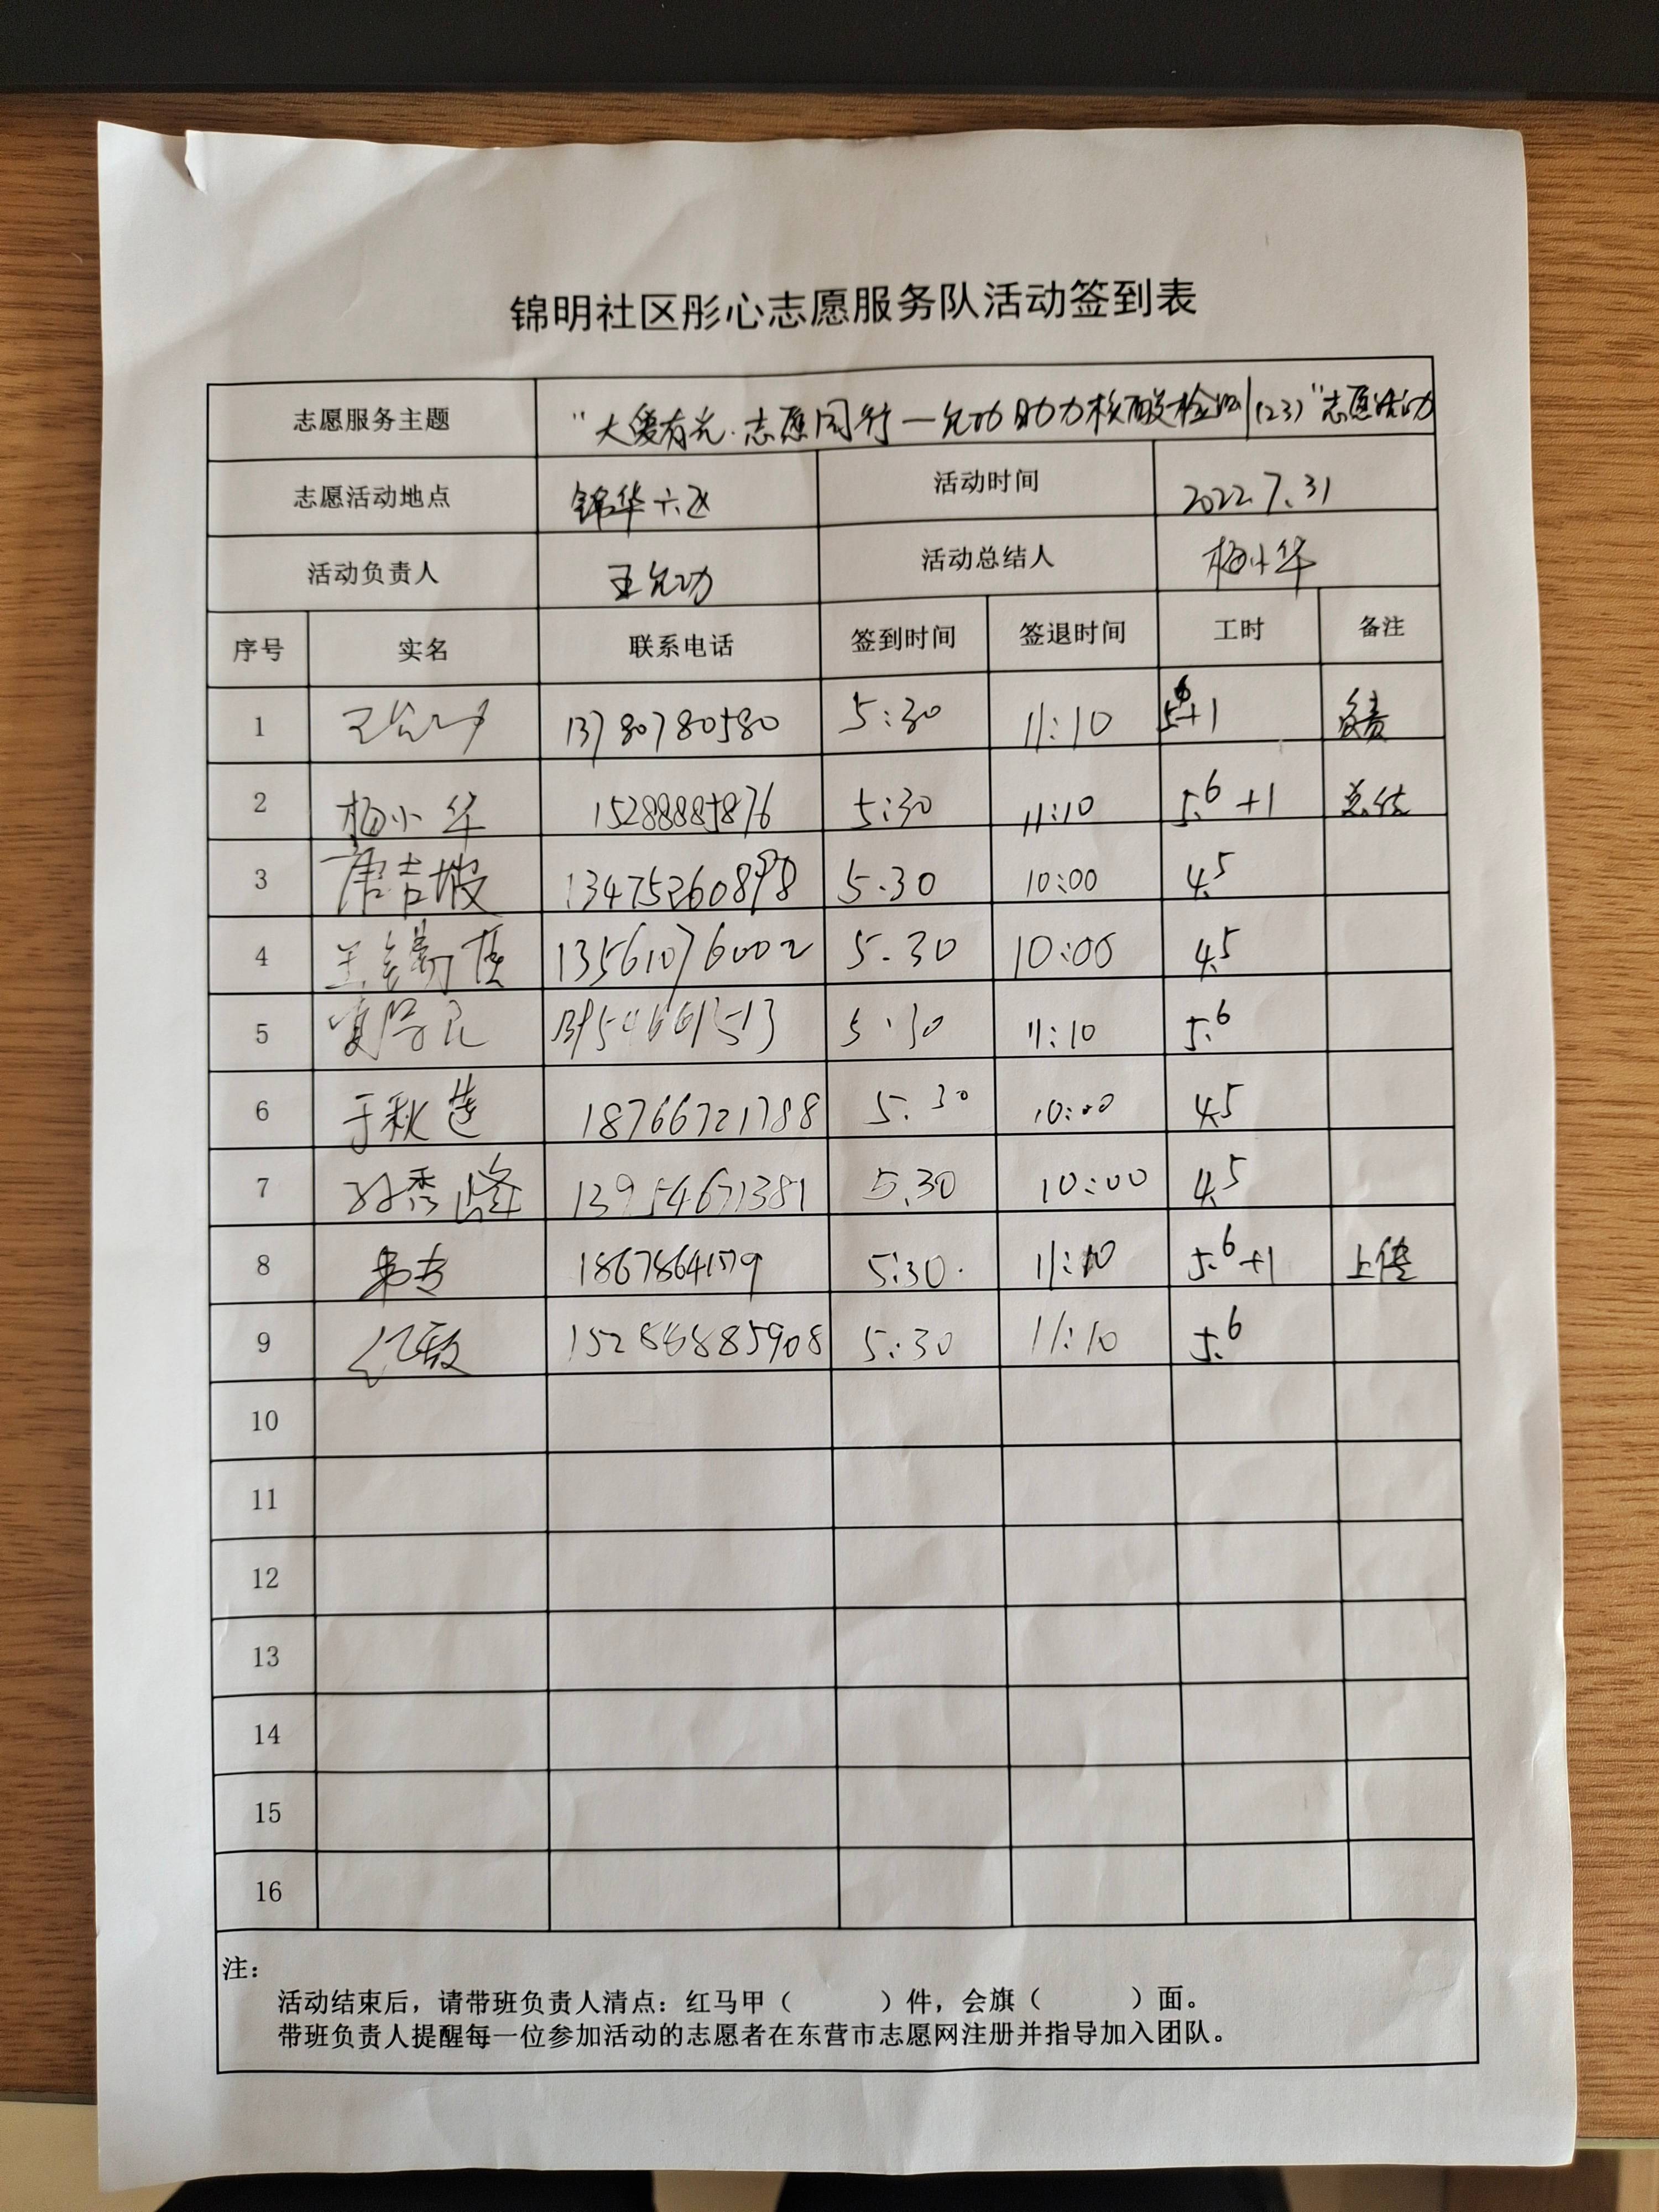 锦明社区彤心志愿服务队活动签到表
志愿服务主题 "大爱有光·志愿同行—允功助力核酸检测(23)"志愿活动
志愿活动地点 锦华六区 活动时间 2022.7.31
活动负责人 王允功 活动总结人 杨小华
序号 实名 联系电话 签到时间 签退时间 工时 备注
1 王允功 13780780580 5:30 11:10 +1 负责
2 杨小华 15288885876 5:30 11:10 5.6+1 总结
3 唐吉坡 5.30 10:00 4.5
4 13561076002 5.30 10:00 4.5
5 5:30 11:10 5.6
6 于秋莲 18766721788 5.30 10:00 4.5
7 孙秀峰 13954671381 5.30 10:00 4.5
8 5:30 11:10 5.6+1 上传
9 5:30 11:10 5.6
10
11
12
13
14
15
16
注：
活动结束后，请带班负责人清点：红马甲（ ）件，会旗（ ）面。
带班负责人提醒每一位参加活动的志愿者在东营市志愿网注册并指导加入团队。